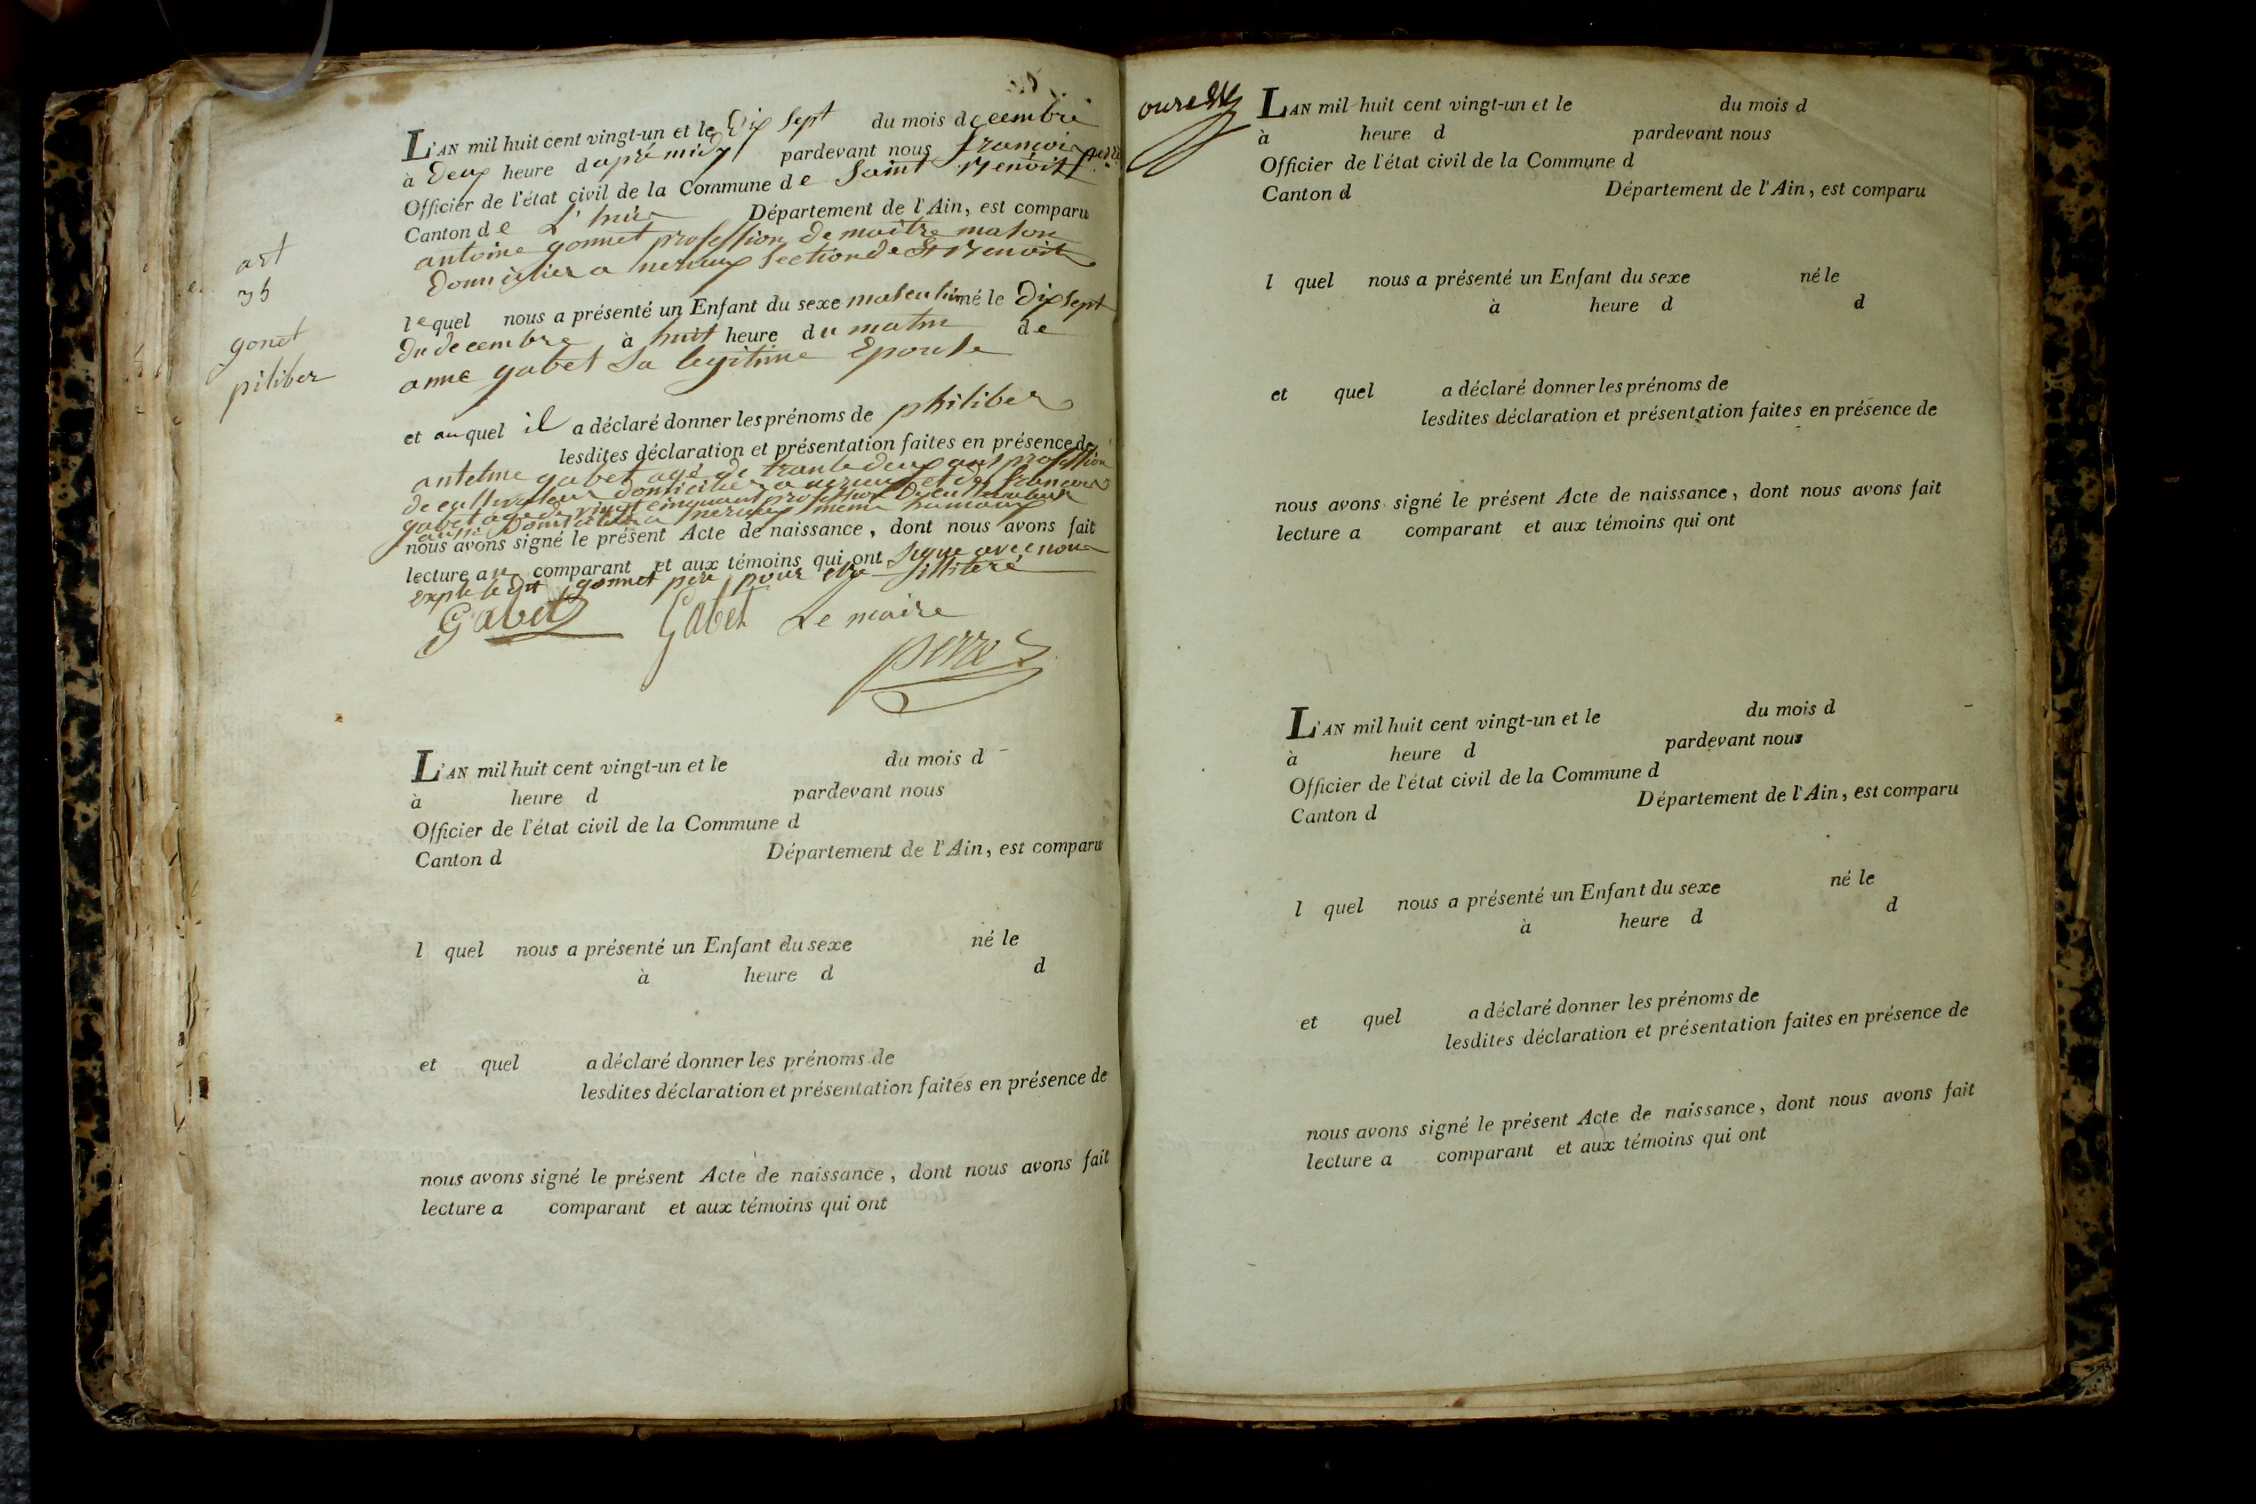 art
35
gonet
piliber
L'AN mil huit cent vingt-un et le Dix sept du mois decembre
à Deux heure d apré midy pardevant nous françois perret
Officier de l'état civil de la Commune de Saint Benoit
Canton de L'huis Département de l'Ain, est comparu
antoine gonnet profession de maitre mason
Domicilier a nerieux section de St Benoit
lequel nous a présenté un Enfant du sexe masculin né le Dix sept
Du decembre à huit heure du matin de
anne gabet sa legitime Epouse
et auquel il a déclaré donner les prénoms de philiber
lesdites déclaration et présentation faites en présence de
antelme gabet agé de trante deux ans profession
de cultivateur Domicilier a nerieux et de françois
gabet agé de vingt cinq ans profession De cultivateur
aussi Domicilier a nerieux meme hameaux
nous avons signé le présent Acte de naissance, dont nous avons fait
lecture au comparant et aux témoins qui ont signe avec nous
exepte le dit gonnet pere pour etre illiteré
Gabet Gabet Le maire
perret
L'AN mil huit cent vingt-un et le du mois d
à heure d pardevant nous
Officier de l'état civil de la Commune d
Canton d Département de l'Ain, est comparu
l quel nous a présenté un Enfant du sexe né le
à heure d d
et quel a déclaré donner les prénoms de
lesdites déclaration et présentation faites en présence de
nous avons signé le présent Acte de naissance, dont nous avons fait
lecture a comparant et aux témoins qui ont
L'AN mil huit cent vingt-un et le du mois d
à heure d pardevant nous
Officier de l'état civil de la Commune d
Canton d Département de l'Ain, est comparu
l quel nous a présenté un Enfant du sexe né le
à heure d d
et quel a déclaré donner les prénoms de
lesdites déclaration et présentation faites en présence de
nous avons signé le présent Acte de naissance, dont nous avons fait
lecture a comparant et aux témoins qui ont
L'AN mil huit cent vingt-un et le du mois d
à heure d pardevant nous
Officier de l'état civil de la Commune d
Canton d Département de l'Ain, est comparu
l quel nous a présenté un Enfant du sexe né le
à heure d d
et quel a déclaré donner les prénoms de
lesdites déclaration et présentation faites en présence de
nous avons signé le présent Acte de naissance, dont nous avons fait
lecture a comparant et aux témoins qui ont